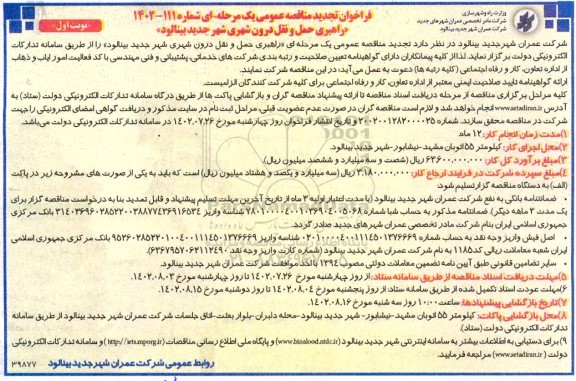 وزارت راه و شهرسازی
شرکت مادر تخصصی عمران شهرهای جدید
فراخوان تجدید مناقصه عمومی یک مرحله-ای شماره ۱۱۱-۱۴۰۲
«راهبری حمل و نقل درون شهری شهر جدید بینالود»
«نوبت اول»
شرکت عمران شهر جدید بینالود در نظر دارد تجدید مناقصه عمومی یک مرحله ای «راهبری حمل و نقل درون شهری شهر جدید بینالود» را از طریق سامانه تدارکات
الکترونیکی دولت برگزار نماید. لذا از کلیه پیمانکاران دارای گواهینامه تعیین صلاحیت و رتبه بندی شرکت های خدماتی، پشتیبانی و فنی مهندسی با کد فعالیت امور ایاب و ذهاب
از اداره تعاون، کار و رفاه اجتماعی (کلیه رتبه ها) دعوت به عمل می آید؛ در این مناقصه شرکت نمایند.
ارائه گواهینامه تایید صلاحیت ایمنی معتبر از اداره تعاون، کار و رفاه اجتماعی برای کلیه شرکت کنندگان الزامیست.
کلیه مراحل برگزاری مناقصه از مرحله دریافت اسناد مناقصه تا ارائه پیشنهاد مناقصه گران و بازگشایی پاکت ها از طریق درگاه سامانه تدارکات الکترونیکی دولت (ستاد) به
آدرس www.setadiran.ir انجام خواهد شد و لازم است مناقصه گران در صورت عدم عضویت قبلی، مراحل ثبت نام در سایت مذکور و دریافت گواهی امضای الکترونیکی را جهت
شرکت در مناقصه محقق سازند. شماره ۲۰۰۲۰۰۱۲۸۲۰۰۰۰۲۵ و تاریخ انتشار فراخوان روز چهارشنبه مورخ ۱۴۰۲.۰۷.۲۶ در سامانه تدارکات الکترونیکی دولت می‌باشد.
۱)مدت زمان انجام کار: ۱۲ ماه.
۲)محل اجرای کار: کیلومتر ۵۵ اتوبان مشهد-نیشابور -شهر جدید بینالود.
۳)مبلغ برآورد کل کار: ۶۳.۶۰۰.۰۰۰.۰۰۰ ریال (شصت و سه میلیارد و ششصد میلیون ریال)
۴)مبلغ سپرده شرکت در فرایند ارجاع کار: ۳.۱۸۰.۰۰۰.۰۰۰ ریال (سه میلیارد و یکصد و هشتاد میلیون ریال) است که باید به یکی از صورت های مشروحه زیر در پاکت
(الف) به دستگاه مناقصه گزار تسلیم شود:
ضمانتنامه بانکی به نفع شرکت عمران شهر جدید بینالود (با مدت اعتبار اولیه ۳ ماه از تاریخ آخرین مهلت تسلیم پیشنهاد و قابل تمدید بنا به درخواست مناقصه گزار برای
یک مدت ۳ ماهه دیگر).
جمهوری اسلامی ایران بنام شرکت مادر تخصصی عمران شهرهای جدید صادر گردد.
سایر تضامین قانونی طبق آیین نامه تضمین معاملات دولتی مصوب ۱۳۹۴ با تأکد موافقت مدیریت شرکت عمران شهر جدید بینالود.
۵)مهلت دریافت اسناد مناقصه از طریق سامانه ستاد: از روز چهارشنبه مورخ ۱۴۰۲.۰۷.۲۶ تا روز چهارشنبه مورخ ۱۴۰۲.۰۸.۰۳.
۶)مهلت عودت اسناد تکمیل شده از طریق سامانه ستاد: از روز پنجشنبه مورخ ۱۴۰۲.۰۸.۰۴ تا روز دوشنبه مورخ ۱۴۰۲.۰۸.۱۵.
۷)تاریخ بازگشایی پیشنهادها: ساعت ۱۰:۰۰ روز سه شنبه مورخ ۱۴۰۲.۰۸.۱۶
۸)محل بازگشایی پاکات: کیلومتر ۵۵ اتوبان مشهد-نیشابور- شهر جدید بینالود-محله دلبران-بلوار بعثت-اتاق جلسات شرکت عمران شهر جدید بینالود از طریق سامانه
تدارکات الکترونیکی دولت (ستاد).
۹)برای دستیابی به اطلاعات بیشتر به سامانه اینترنتی شهر جدید بینالود (www.binalood.ntdc.ir) و پایگاه ملی اطلاع رسانی مناقصات (http://iets.mporg.ir) و سامانه تدارکات الکترونیکی
دولت (www.setadiran.ir) مراجعه فرمایید.
روابط عمومی شرکت عمران شهر جدید بینالود
۳۹۸۷۷